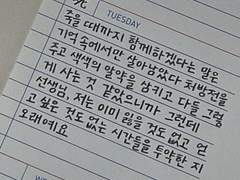 TUESDAY
죽을 때까지 함께하겠다는 말은
기억 속에서만 살아남았다 처방전을
주고 색색의 알약을 삼키고 다들 그렇
게 사는 것 같았으니까 그런데
선생님, 저는 이미 잃을 것도 없고 얻
고 싶은 것도 없는 시간들을 투약한 지
오래예요